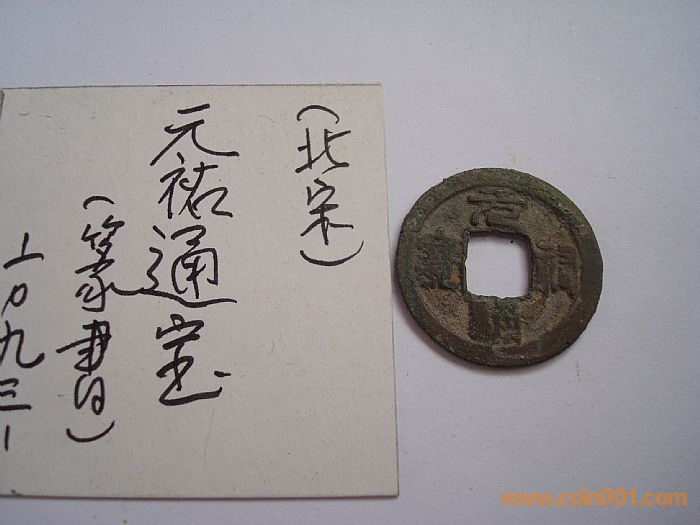 (北宋)
元祐通宝
(篆書)
九三
元祐通寶
www.coin001.com